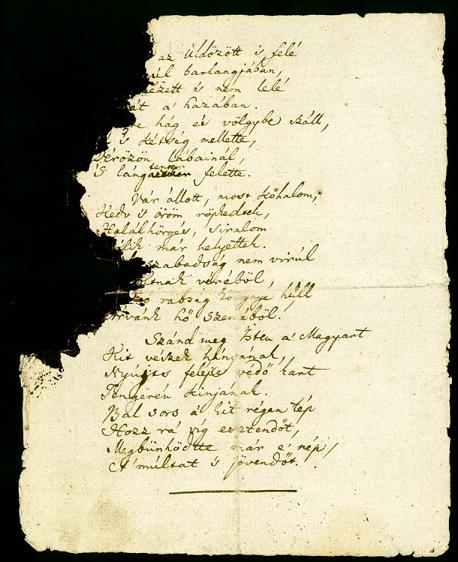 az üldözött is felé
úl barlangjában,
ézett és nem lelé
át a' hazában.
re hág és völgybe száll,
s kétség mellette,
Vérözön lábainál,
S lángtenger felette.
Vár állott, most kőhalom,
Kedv s öröm röpkedtek,
Halálhörgés, siralom
lik már helyettek.
szabadság nem virúl
oltnak véréből,
zó rabság könnye hull
Árvánk hő szeméből!
Szánd meg Isten a' Magyart
Kit vészek hányának,
Nyújts feléje védő kart
Tengerén kínjának.
Bal sors a' kit régen tép
Hozz rá víg esztendőt,
Megbűnhödte már e' nép
A' múltat s jövendőt.